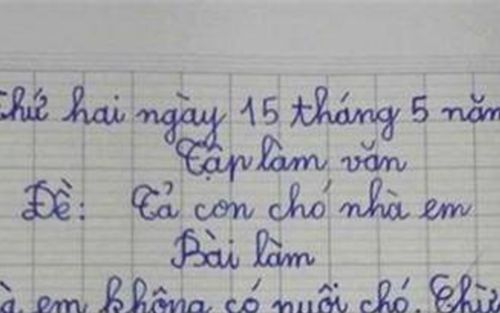 Thứ hai ngày 15 tháng 5 năm
Tập làm văn
Đề: Tả con chó nhà em
Bài làm
em không có nuôi chó.